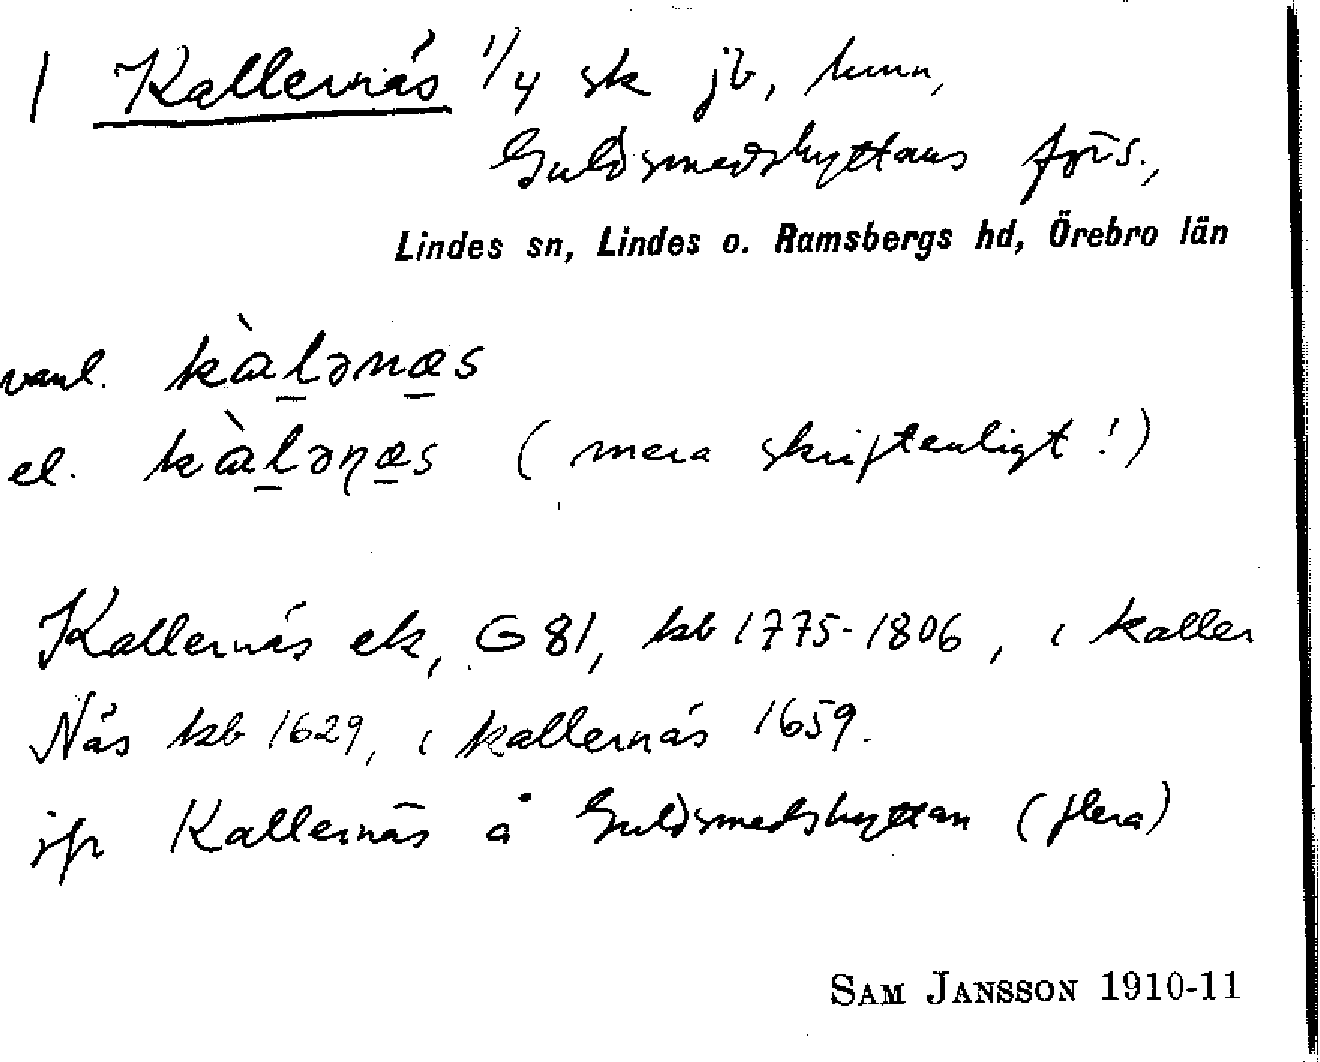 1 Kallernäs 1/4 sk jb, hmn,
Guldsmedshyttans förs.,
Lindes sn, Lindes o. Ramsbergs hd, Örebro län
vanl. kàlənæs
el. kàləɳæs (mera skriftenligt!)
Kallernäs ek, G 81, kb 1775-1806, i Kaller
Näs kb 1629, i Kallernäs 1659.
jfr Kallernäs å Guldsmedshyttan (flera)
SAM JANSSON 1910-11